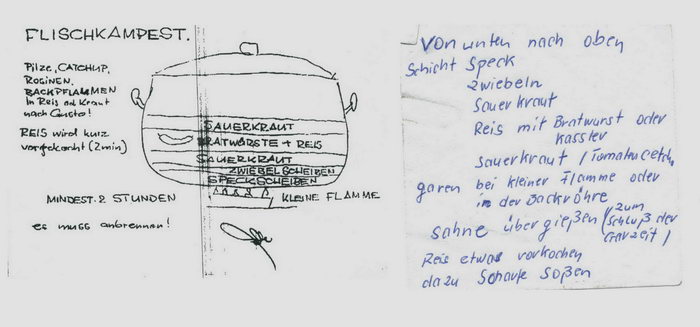 FLISCHKAMPEST.
Pilze, CATCHUP,
ROSINEN,
BACKPFLAUMEN
in Reis od Kraut
nach Gusto!
REIS wird kurz
vorgekocht (2 min)
SAUERKRAUT
BRATWÜRSTE + REIS
SAUERKRAUT
ZWIEBELSCHEIBEN
SPECKSCHEIBEN
KLEINE FLAMME
MINDEST. 2 STUNDEN
es muss anbrennen!
Von unten nach oben
Schicht Speck
Zwiebeln
Sauerkraut
Reis mit Bratwurst oder
Kassler
Sauerkraut /
garen bei kleiner Flamme oder
in der Backröhre
Sahne übergießen (zum
Schluß der
Garzeit)
Reis etwas vorkochen
dazu Scharfe Soßen